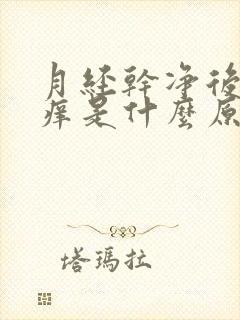 月经幹净後
痒是什麼原
塔瑪拉